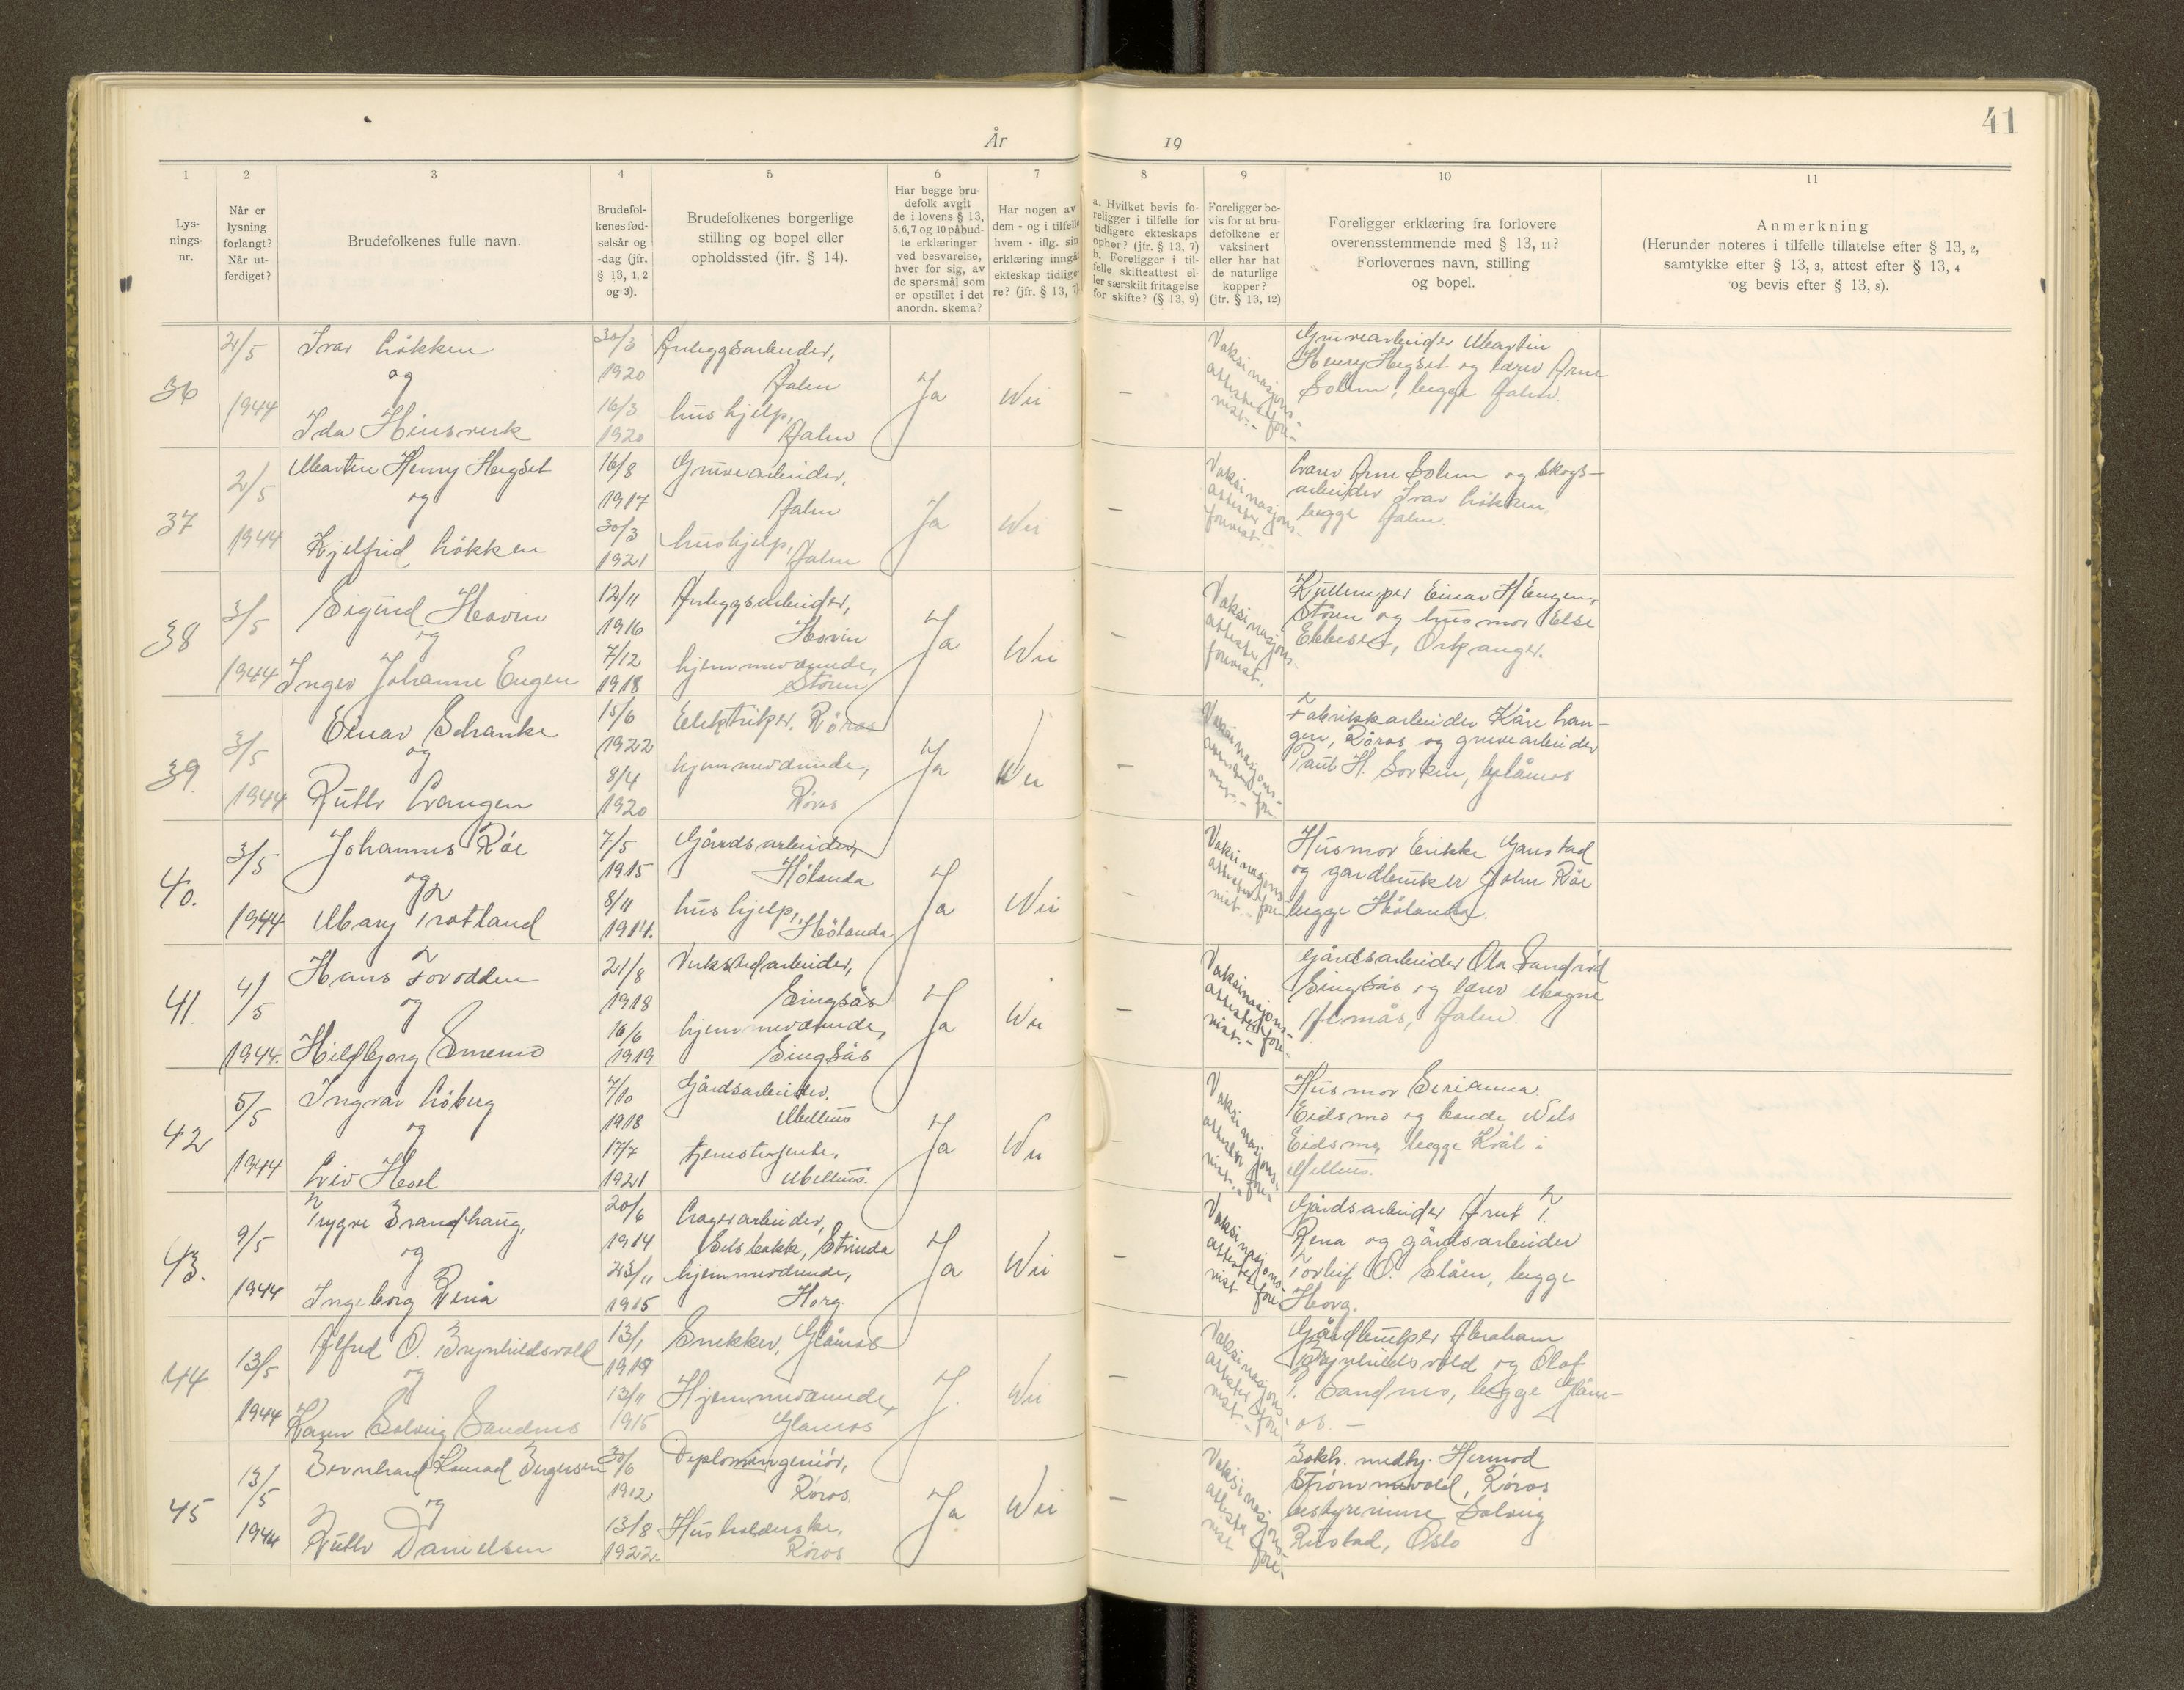 År
19
41
1
2
3
4
5
6
7
8
9
10
11
Lys-
nings-
nr.
Når er
lysning
forlangt?
Når ut-
ferdiget?
Brudefolkenes fulle navn.
Brudefol-
kenes fød-
selsår og
-dag (jfr.
§ 13, 1, 2
og 3).
Brudefolkenes borgerlige
stilling og bopel eller
opholdssted (jfr. § 14).
Har begge bru-
defolk avgit
de i lovens § 13,
5,6,7 og 10 påbud-
te erklæringer
ved besvarelse,
hver for sig, av
de spørsmål som
er opstillet i det
anordn. skema?
Har nogen av
dem - og i tilfelle
hvem - iflg. sin
erklæring inngåt
ekteskap tidlige-
re? (jfr. § 13, 7)
a. Hvilket bevis fo-
religger i tilfelle for
tidligere ekteskaps
ophør? (jfr. § 13, 7)
b. Foreligger i til-
felle skifteattest el-
ler særskilt fritagelse
for skifte? (§ 13, 9)
Foreligger be-
vis for at bru-
defolkene er
vaksinert
eller har hat
de naturlige
kopper?
(jfr. § 13, 12)
Foreligger erklæring fra forlovere
overensstemmende med § 13, 11?
Forlovernes navn, stilling
og bopel.
Anmerkning
(Herunder noteres i tilfelle tillatelse efter § 13, 2,
samtykke efter § 13, 3, attest efter § 13, 4
og bevis efter § 13, 8).
36
2/5
1944
Ivar Løkken
og
Ida Hinsverk
30/3
1920
16/3
1920
Anleggsarbeider,
Dalen
hushjelp,
Dalen
Ja
Nei
-
Vaksinasjons-
attester fore-
vist.-
Gruvearbeider Martin
Henry Hegset og lærer Arne
Solem, begge Dalen.
37
2/5
1944
Martin Henry Hegset
og
Kjelfrid Løkken
16/8
1917
30/3
1921
Gruvearbeider,
Dalen
hushjelp,
Dalen
Ja
Nei
-
Vaksinasjons-
attester
forevist.-
Lærer Arne Solem og skogs-
arbeider Ivar Løkken,
begge Dalen.
38
3/5
1944
Sigurd Hovin
og
Inger Johanne Engen
12/11
1916
7/12
1918
Anleggsarbeider,
Hovin
hjemmeværende,
Støren
Ja
Nei
-
Vaksinasjons-
attester
forevist.
Einar H. Engen,
Støren og husmor Else
Ebbesen, Orkanger.
39.
3/5
1944
Einar Schanke
og
Ruth Langen
15/6
1922
8/4
1920
Elektriker, Røros
hjemmeværende,
Røros
Ja
Nei
-
Vaksinasjons-
Fabrikkarbeider Kåre Lan-
gen, Røros og gruvearbeider
Paul H. Sorken, Glåmos
40.
3/5
1944
Johannes Røe
og
Mary Trotland
7/5
1915
8/11
1914.
Gårdsarbeider,
Hølanda
hushjelp,
Hølanda
Ja
Nei
-
Vaksinasjons-
attester fore-
vist.-
Husmor Erikke Gaustad
og gårdbruker John Røe
begge Hølanda.
41.
4/5
1944.
Hans Forodden
og
Hildbjørg Smemo
21/8
1918
16/6
1919
Verkstedarbeider,
Singsås
hjemmeværende,
Singsås
Ja
Nei
-
Vaksinasjons-
attester fore-
vist.-
Gårdsarbeider Ola Sandrød
Singsås og lærer Magne
Almås, Dalen
42
5/5
1944
Ingvar Løberg
og
Liv Hesel
7/10
1918
17/7
1921
Gårdsarbeider,
Melhus
tjenestejente,
Melhus.
Ja
Nei
-
Vaksinasjons-
attester fore-
vist.-
Husmor Serianna
Eidsmo og bonde Nels
Eidsmo, begge Kvål i
Melhus.
43.
9/5
1944
Trygve Brandhaug,
og
Ingeborg Rena
20/6
1914
23/11
1915
Lagerarbeider,
Selsbakk, Strinda
hjemmeværende,
Horg
Ja
Nei
-
Vaksinasjons-
attester fore-
vist
Gårdsarbeider Arnt T.
Rena og gårdsarbeider
Torleif O. Slåen, begge
Horg.
44
13/5
1944
Alfred O. Brynhildsvold
og
Karen Solveig Sandmo
13/1
1919
13/11
1915
Snekker, Glåmos
Hjemmeværende,
Glåmos
J.
Nei
-
Vaksinasjons-
attester fore-
vist.-
Gårdbruker Abraham
Brynhildsvold og Olof
T. Sandmo, begge Glåm-
os. -
45
13/5
1944
Bernhard Konrad Bergersen
og
Ruth Danielsen
30/6
1912
13/8
1922.
Diplomingeniør,
Røros
Husholderske,
Røros
Ja
Nei
-
Vaksinasjons-
attester fore-
vist
Bokh. medhj. Hermod
Strømmevold, Røros
bestyrerinne Solveig
Ristad, Oslo